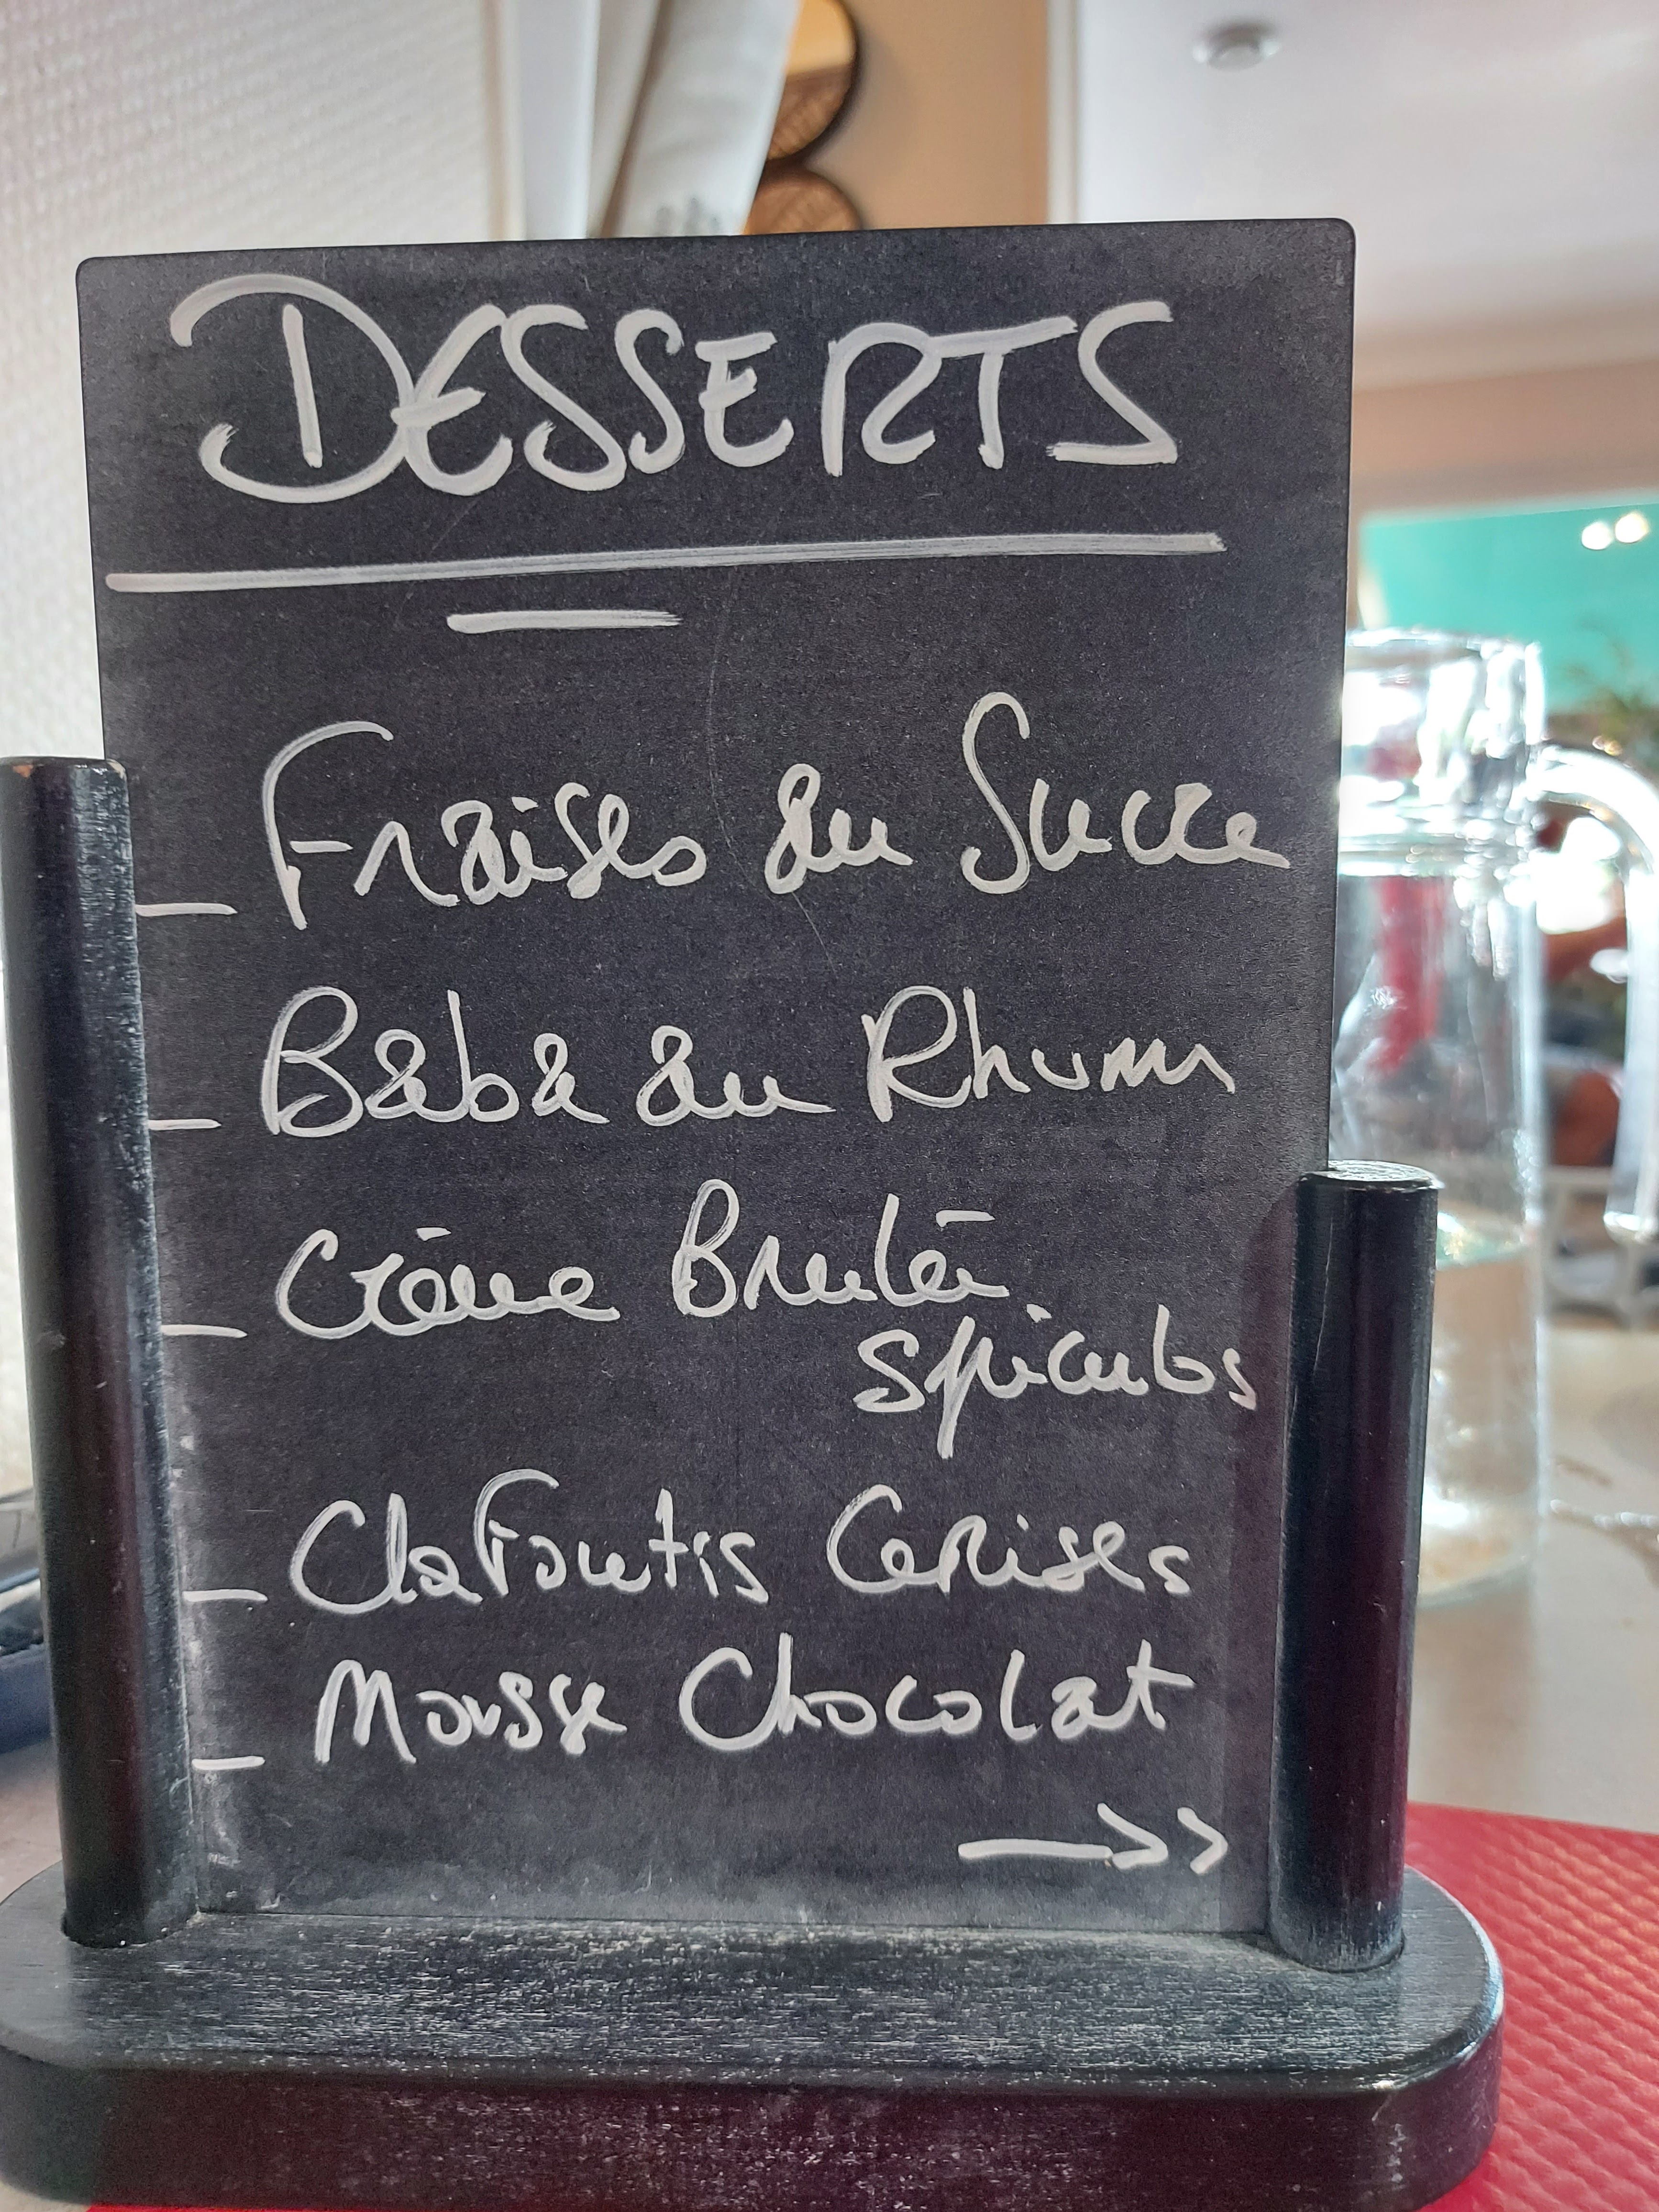 DESSERTS
- Fraises au Sucre
- Baba au Rhum
- Crème Brulée
Spiculos
- Clafoutis Cerises
- Mousse Chocolat
→>